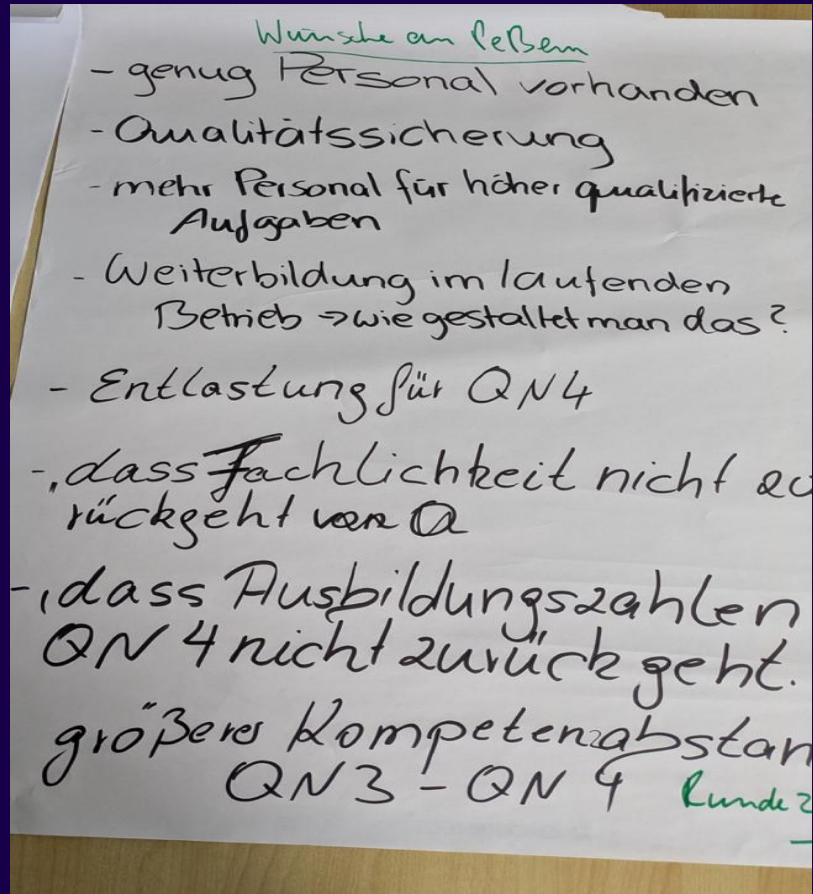 Wünsche an PeBem
- genug Personal vorhanden
- Qualitätssicherung
- mehr Personal für höher qualifizierte
Aufgaben
- Weiterbildung im laufenden
Betrieb → wie gestaltet man das?
- Entlastung für QN4
- , dass Fachlichkeit nicht zu
rückgeht von Q
- , dass Ausbildungszahlen
QN 4 nicht zurück geht.
größeres Kompetenzabstan
QN3 - QN 4
Runde 2